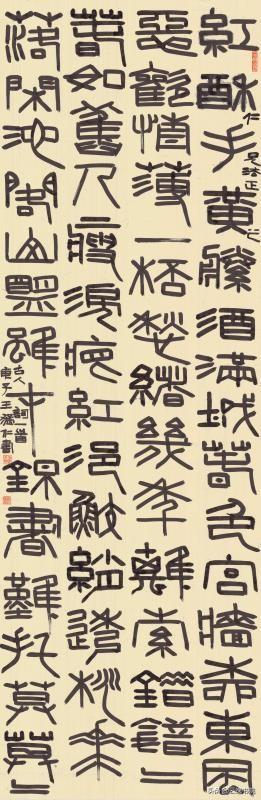 紅酥手黃縢酒滿城萅色宮牆柳東風
惡歡情薄一桮愁緒幾年離索錯錯〻
萅如舊人空瘦淚痕紅浥鮫綃透桃花
落閑池閣山盟雖在錦書難托莫莫〻
古人詞一首
庚子王福仁書